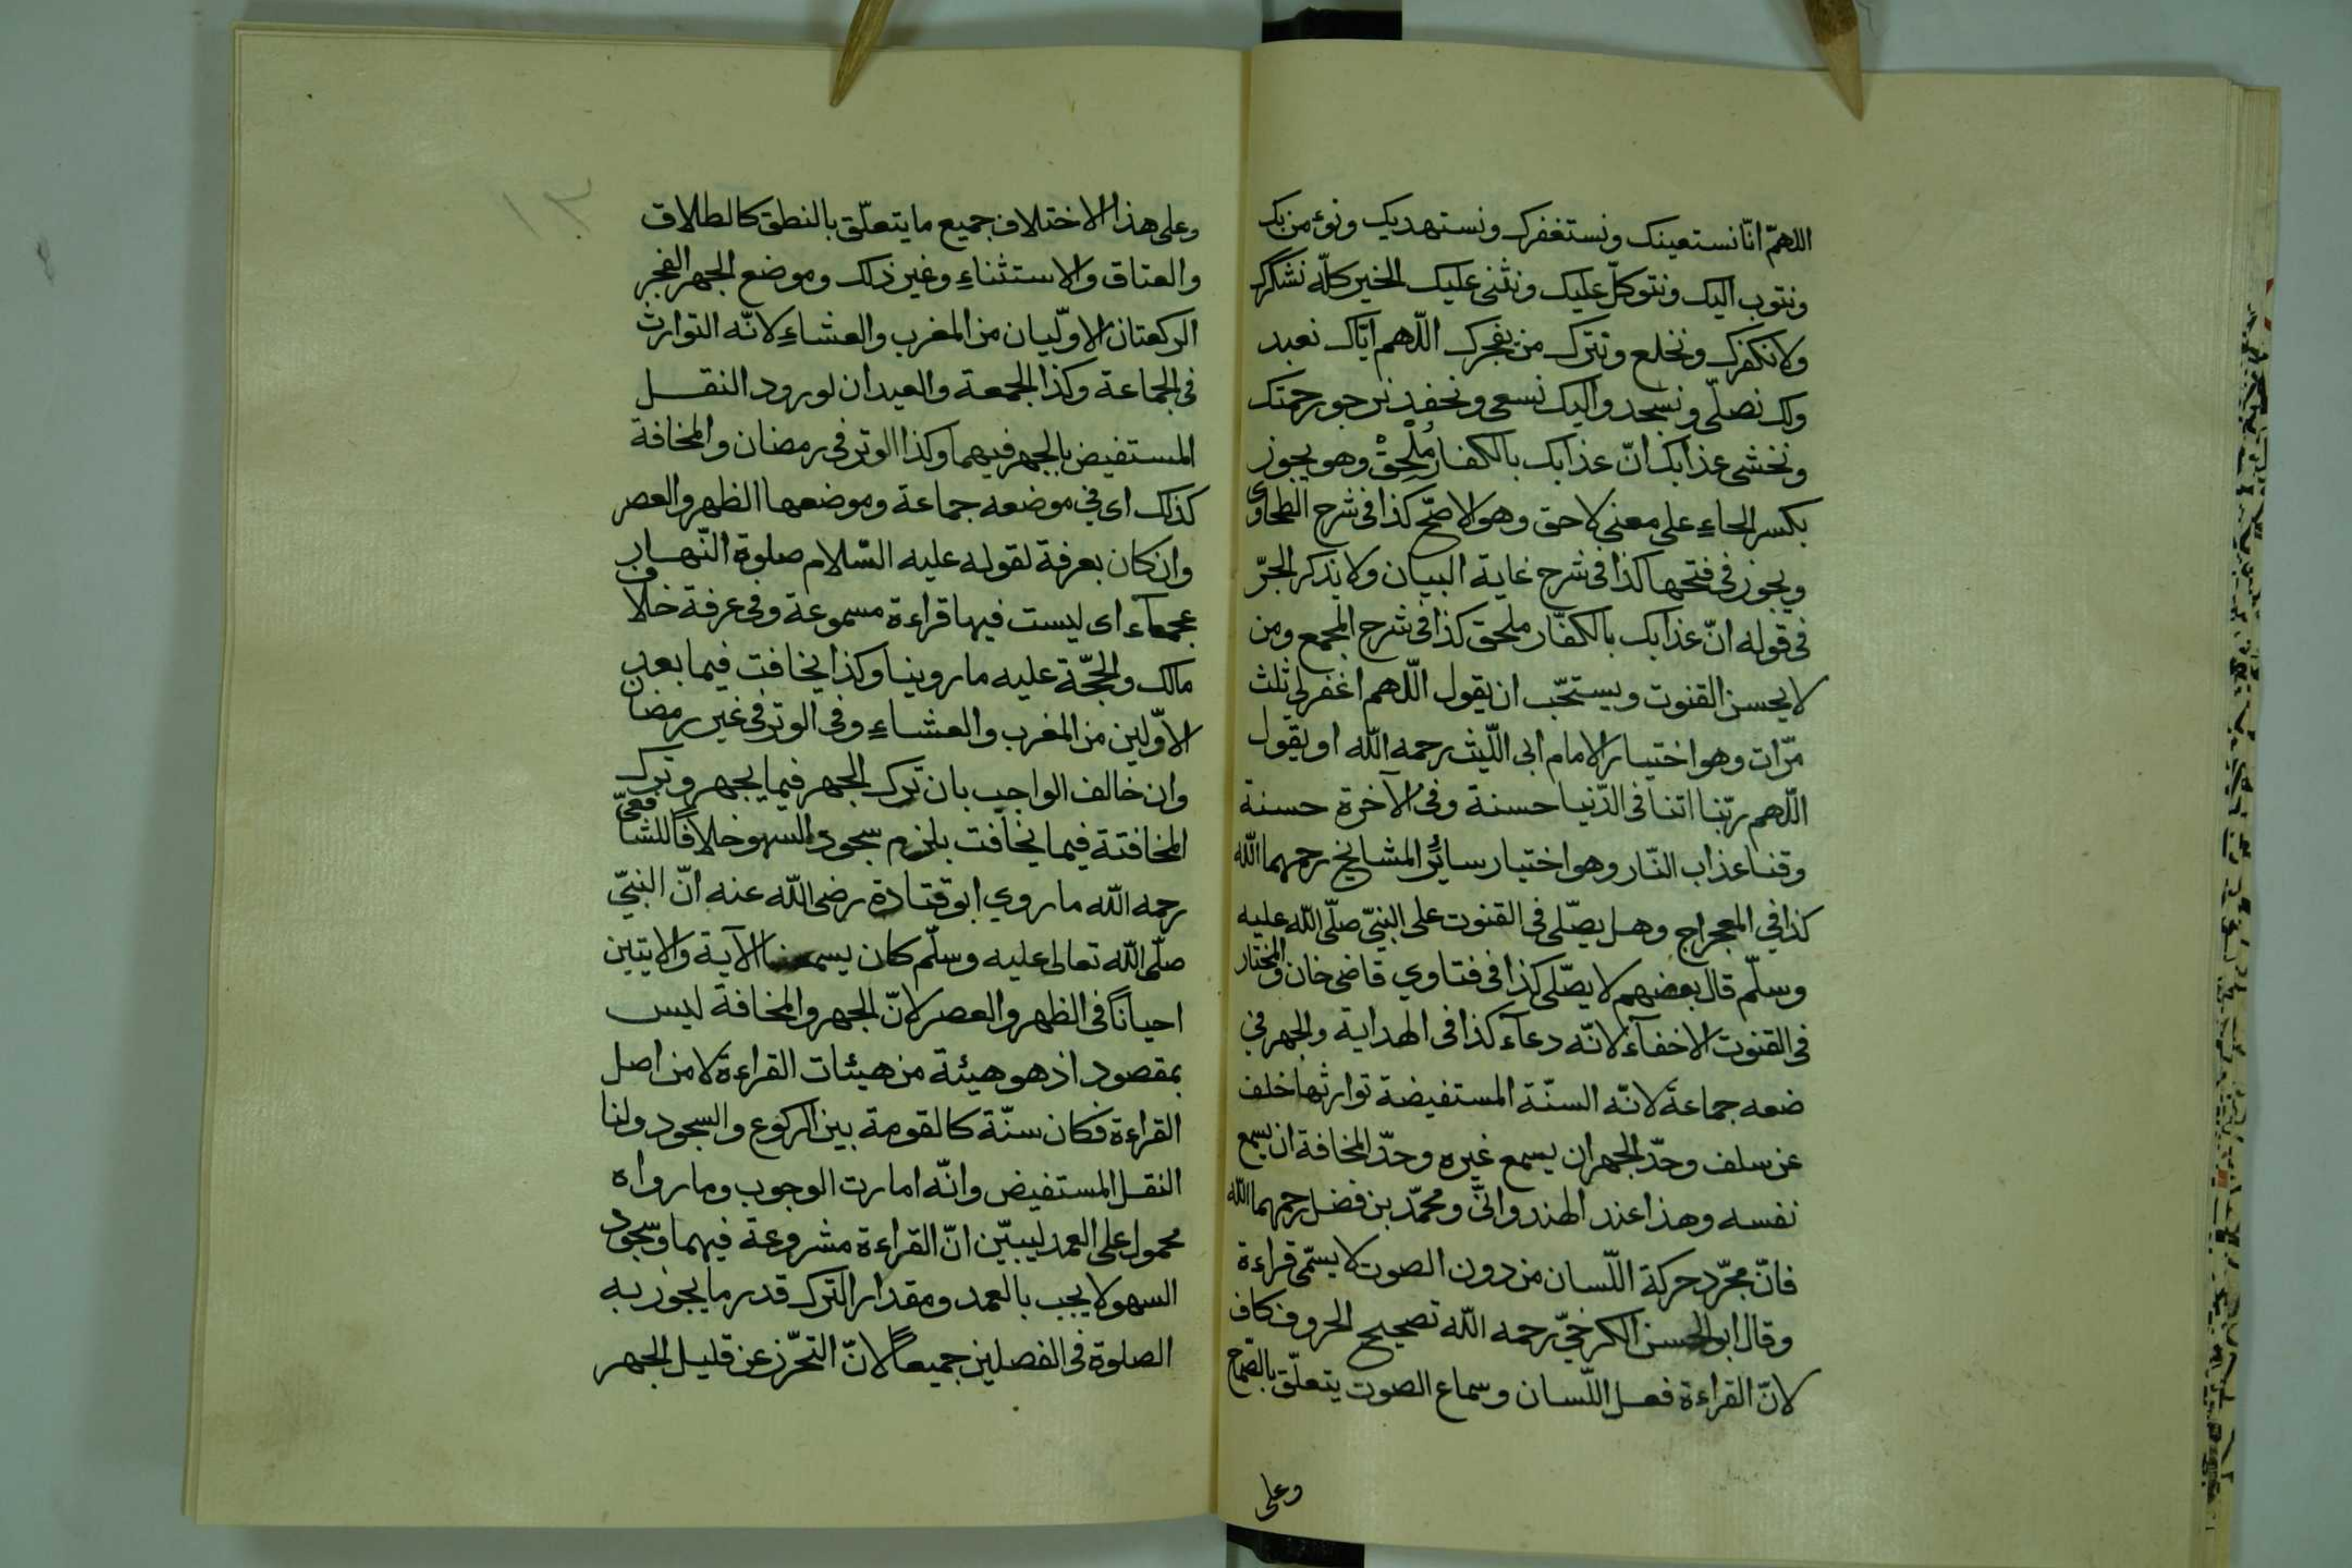 اللهمّ انّا نستعينك ونستغفرك ونستهديك ونؤمن بك
ونتوب اليك ونتوكّل عليك ونثنى عليك الخير كلّه نشكرك
ولا نكفرك ونخلع ونترك من يفجرك اللّهم ايّاك نعبد
ولك نصلّى ونسجد واليك نسعى ونحفد نرجو رحمتك
ونخشى عذابك انّ عذابك بالكفار مُلْحِقْ وهو يجوز
بكسر الحاءِ على معنى لاحق وهو الاصحّ كذا فى شرح الطحاوى
ويجوز فى فتحها كذا فى شرح غاية البيان ولا يذكر الجرّ
فى قوله انّ عذابك بالكفّار ملحق كذا فى شرح المجمع ومن
لا يحسن القنوت ويستحّب ان يقول اللّهم اغفر لى ثلث
مرّات وهو اختيار الامام ابى اللّيث رحمه اللّه او يقول
اللّهم ربّنا اتنا فى الدّنيا حسنة وفى الآخرة حسنة
وقنا عذاب النّار وهو اختيار سائر المشايخ رحمهما اللّه
كذا في المعراج وهل يصّلى فى القنوت على النبيّ صلّى اللّه عليه
وسلّم قال بعضهم لا يصّلى كذا فى فتاوي قاضى خان والمختار
فى القنوت الاخفآء لانّه دعآء كذا فى الهداية والجهر في
ضعه جماعة لانّه السنّة المستفيضة توارثها خلف
عن سلف وحدّ الجهر ان يسمع غيره وحدّ المخافة ان يسمع
نفسه وهذا عند الهندوانىّ ومحمّد بن فضل رحمهما اللّه
فانّ مجرّد حركة اللّسان من دون الصوت لا يسمّى قراءة
وقال ابو الحسن الكرخيّ رحمه اللّه تصحيح الحروف كاف
لانّ القراءة فعل اللّسان وسماع الصوت يتعلّق بالصّماخ
وعلى
وعلى هذا الاختلاف جميع ما يتعلّق بالنطق كالطلاق
والعتاق والاستثناءِ وغير ذلك وموضع الجهر الفجر
الركعتان الاوّليان من المغرب والعشاءِ لانّه التوارث
فى الجماعة وكذا الجمعة والعيدان لورود النقل
المستفيض بالجهر فيهما وكذا الوتر فى رمضان والمخافة
كذلك اى في موضعه جماعة وموضعها الظهر والعصر
وان كان بعرفة لقوله عليه السّلام صلوة النّهار
عجمآء اى ليست فيها قراءة مسموعة وفى عرفة خلاف
مالك والحجّة عليه ما روينا وكذا يخافت فيما بعد
الاوّلين من المغرب والعشاءِ وفى الوتر فى غير رمضان
وان خالف الواجب بان ترك الجهر فيما يجهر وترك
المخافتة فيما يخافت يلزم سجود السهو خلافاً للشافعىّ
رحمه اللّه ما روي ابو قتادة رضى اللّه عنه انّ النبيّ
صلّى اللّه تعالى عليه وسلّم كان يسمعنا الآية والايتين
احياناً فى الظهر والعصر لانّ الجهر والمخافة ليس
بمقصود اذ هو هيئة من هيئات القراءة لا من اصل
القراءة فكان سنّة كالقومة بين الركوع والسجود ولنا
النقل المستفيض وانّه امارت الوجوب وما رواه
محمول على العمد ليبيّن انّ القراءة مشروعة فيهما وسجود
السهو لا يجب بالعمد ومقدار الترك قدر ما يجوز به
الصلوة فى الفصلين جميعاً لانّ التحّرز عن قليل الجهر